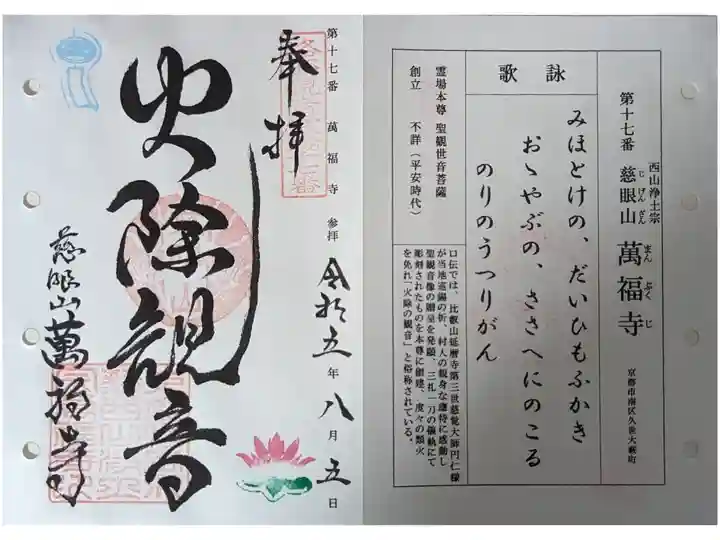 西山浄土宗
第十七番 慈眼山 萬福寺 京都市南区久世大藪町
じげんざん まんぷくじ
詠歌
みほとけの、だいひもふかき
おゝやぶの、ささへにのこる
のりのうつりがん
霊場本尊 聖観世音菩薩
創立 不詳(平安時代)
口伝では、比叡山延暦寺第三世慈覚大師円仁様
が当地巡錫の折、村人の親身な應待に感動し
聖観音像の贈呈を発願、三礼一刀の儀軌にて
彫刻されたものを本尊に創建、度々の類火
を免れ「火除の観音」と俗称されている。
第十七番 萬福寺 参拝 令和五年八月五日
奉拝
火除観音
慈眼山萬福寺